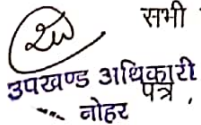 सभी
उपखण्ड अधिकारी
पत्र,
नोहर